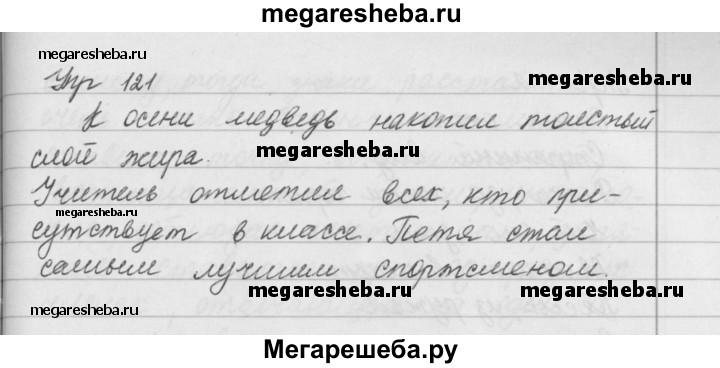 megaresheba.ru
megaresheba.ru
Упр 121
megaresheba.ru
К осени медведь накопил толстый
слой жира.
megaresheba.ru
Учитель отметил всех, кто при-
megaresheba.ru
сутствует в классе. Петя стал
самым лучшим спортсменом.
megaresheba.ru
megaresheba.ru
megaresheba.ru
Мегарешеба.ру